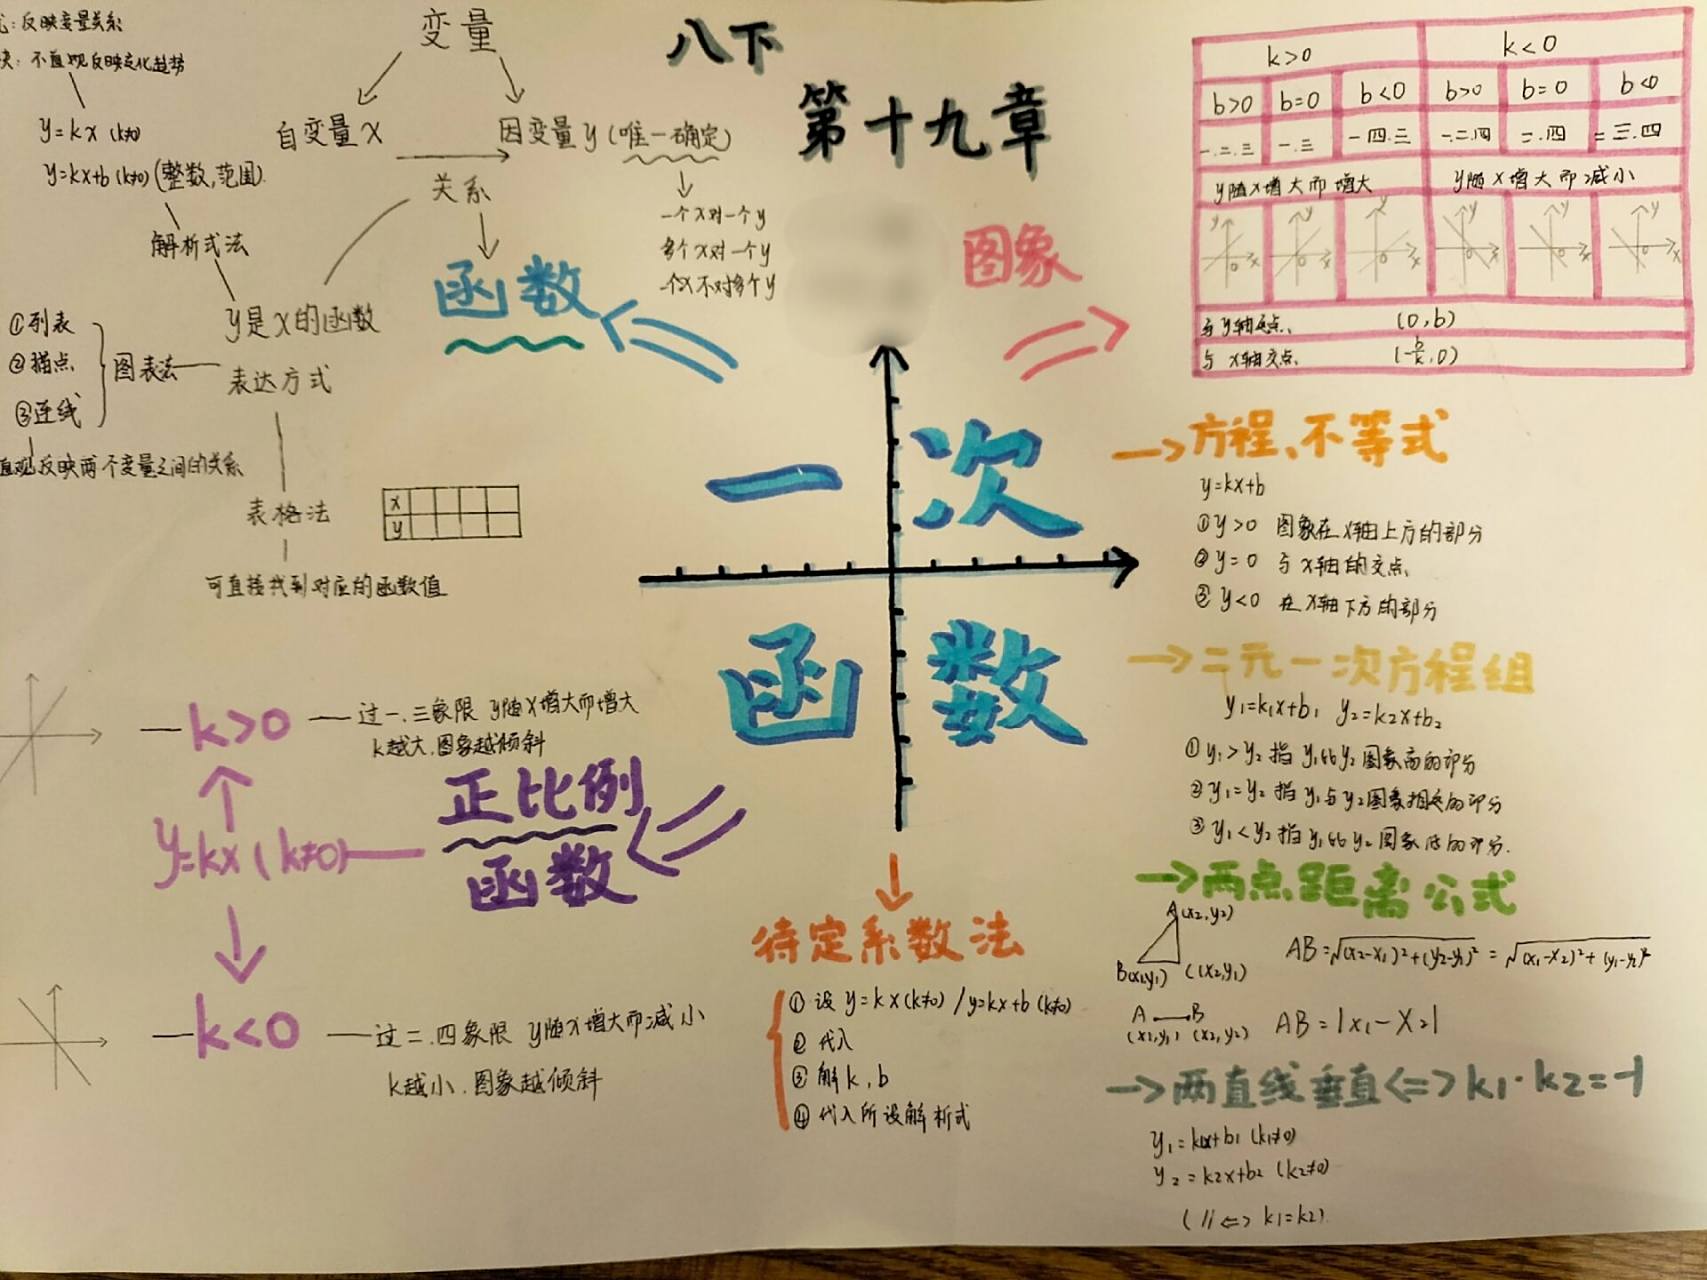 八下
第十九章
一次
函数
变量
自变量x
因变量y(唯一确定)
关系
一个x对一个y
多个x对一个y
一个x不对多个y
函数
:反映变量关系
:不直观反映变化趋势
y=kx (k≠0)
y=kx+b (k≠0) (整数,范围)
解析式法
y是x的函数
表达方式
图表法
①列表
②描点
③连线
直观反映两个变量之间的关系
表格法
x
y
可直接找到对应的函数值
图象
k>0 k<0
b>0 b=0 b<0 b>0 b=0 b<0
一.二.三 一.三 一.四.三 一.二.四 二.四 二三.四
y随x增大而增大 y随x增大而减小
y x o y x o y x o y x o y x o y x o
与y轴交点 (0,b)
与x轴交点 (-b/k,0)
方程、不等式
y=kx+b
①y>0 图象在x轴上方的部分
②y=0 与x轴的交点
③y<0 在x轴下方的部分
二元一次方程组
y₁=k₁x+b₁ y₂=k₂x+b₂
①y₁>y₂指y₁比y₂图象高的部分
②y₁=y₂指y₁与y₂图象相交的部分
③y₁<y₂指y₁比y₂图象低的部分.
两点距离公式
A(x₂,y₂)
B(x₁,y₁) C(x₂,y₁)
AB=√(x₂-x₁)²+(y₂-y₁)² = √(x₁-x₂)²+(y₁-y₂)²
A B
(x₁,y₁) (x₂,y₂)
AB=|x₁-x₂|
两直线垂直<=>k₁·k₂=-1
y₁=k₁x+b₁ (k₁≠0)
y₂=k₂x+b₂ (k₂≠0)
(//<=> k₁=k₂)
正比例
函数
y=kx(k≠0)
k>0
过一.三象限 y随x增大而增大
k越大.图象越倾斜
k<0
过二.四象限 y随x增大而减小
k越小.图象越倾斜
待定系数法
①设y=kx(k≠0)/y=kx+b(k≠0)
②代入
③解k,b
④代入所设解析式